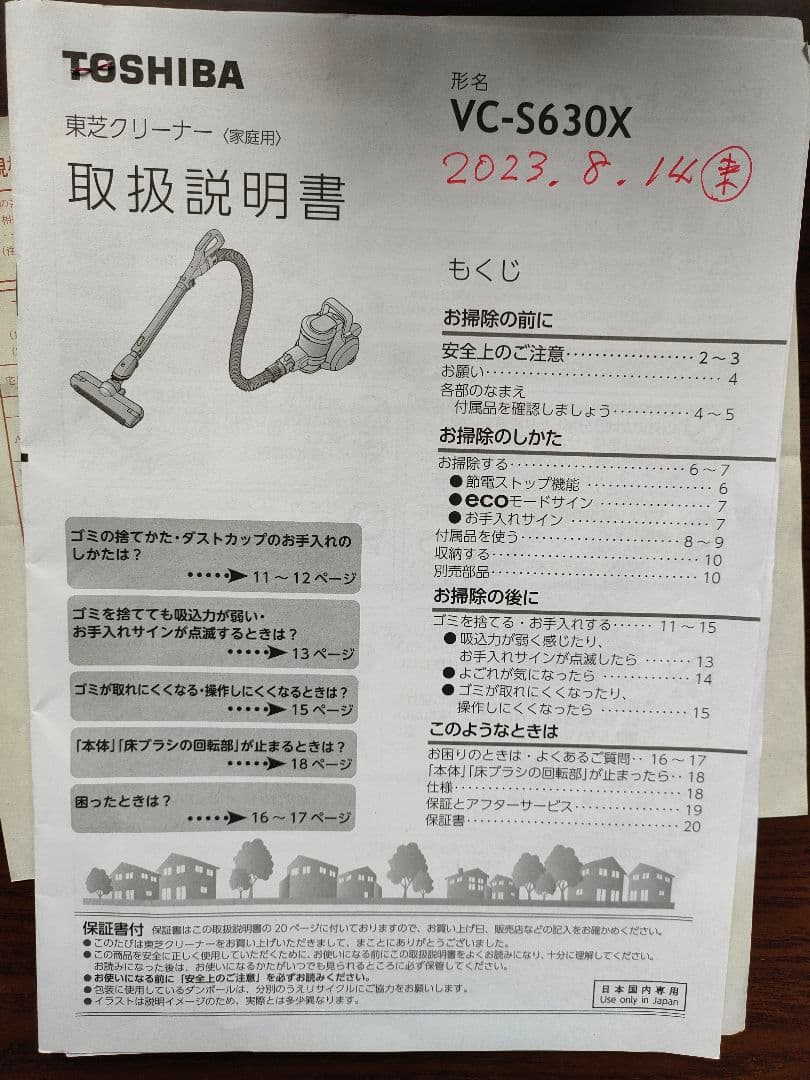 TOSHIBA
東芝クリーナー〈家庭用〉
取扱説明書
形名
VC-S630X
2023.8.14 東
もくじ
お掃除の前に
安全上のご注意………………… 2～3
お願い…………………………… 4
各部のなまえ
付属品を確認しましょう………… 4～5
お掃除のしかた
お掃除する……………………… 6～7
●節電ストップ機能 ……………… 6
●ecoモードサイン ……………… 7
●お手入れサイン ………………… 7
付属品を使う…………………… 8～9
収納する………………………… 10
別売部品………………………… 10
お掃除の後に
ゴミを捨てる・お手入れする…… 11～15
●吸込力が弱く感じたり、
お手入れサインが点滅したら ……… 13
●よごれが気になったら …………… 14
●ゴミが取れにくくなったり、
操作しにくくなったら …………… 15
このようなときは
お困りのときは・よくあるご質問‥ 16～17
「本体」「床ブラシの回転部」が止まったら‥ 18
仕様……………………………… 18
保証とアフターサービス…………… 19
保証書…………………………… 20
ゴミの捨てかた・ダストカップのお手入れの
しかたは？
•••••➤ 11～12ページ
ゴミを捨てても吸込力が弱い・
お手入れサインが点滅するときは？
•••••➤ 13ページ
ゴミが取れにくくなる・操作しにくくなるときは？
•••••➤ 15ページ
「本体」「床ブラシの回転部」が止まるときは？
•••••➤ 18ページ
困ったときは？
•••••➤ 16～17ページ
保証書付 保証書はこの取扱説明書の20ページに付いておりますので、お買い上げ日、販売店などの記入をお確かめください。
●このたびは東芝クリーナーをお買い上げいただきまして、まことにありがとうございました。
●この商品を安全に正しく使用していただくために、お使いになる前にこの取扱説明書をよくお読みになり、十分に理解してください。
お読みになった後は、お使いになるかたがいつでも見られるところに必ず保管してください。
●お使いになる前に「安全上のご注意」を必ずお読みください。
●包装に使用しているダンボールは、分別のうえリサイクルにご協力をお願いします。
●イラストは説明イメージのため、実際とは多少異なります。
日本国内専用
Use only in Japan